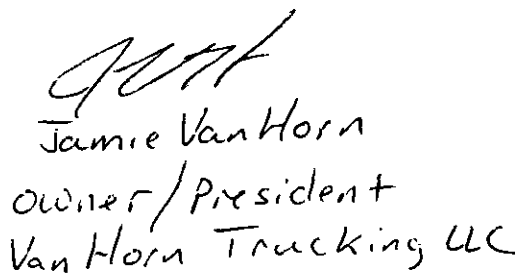 Jamie VanHorn
owner/President
VanHorn Trucking LLC